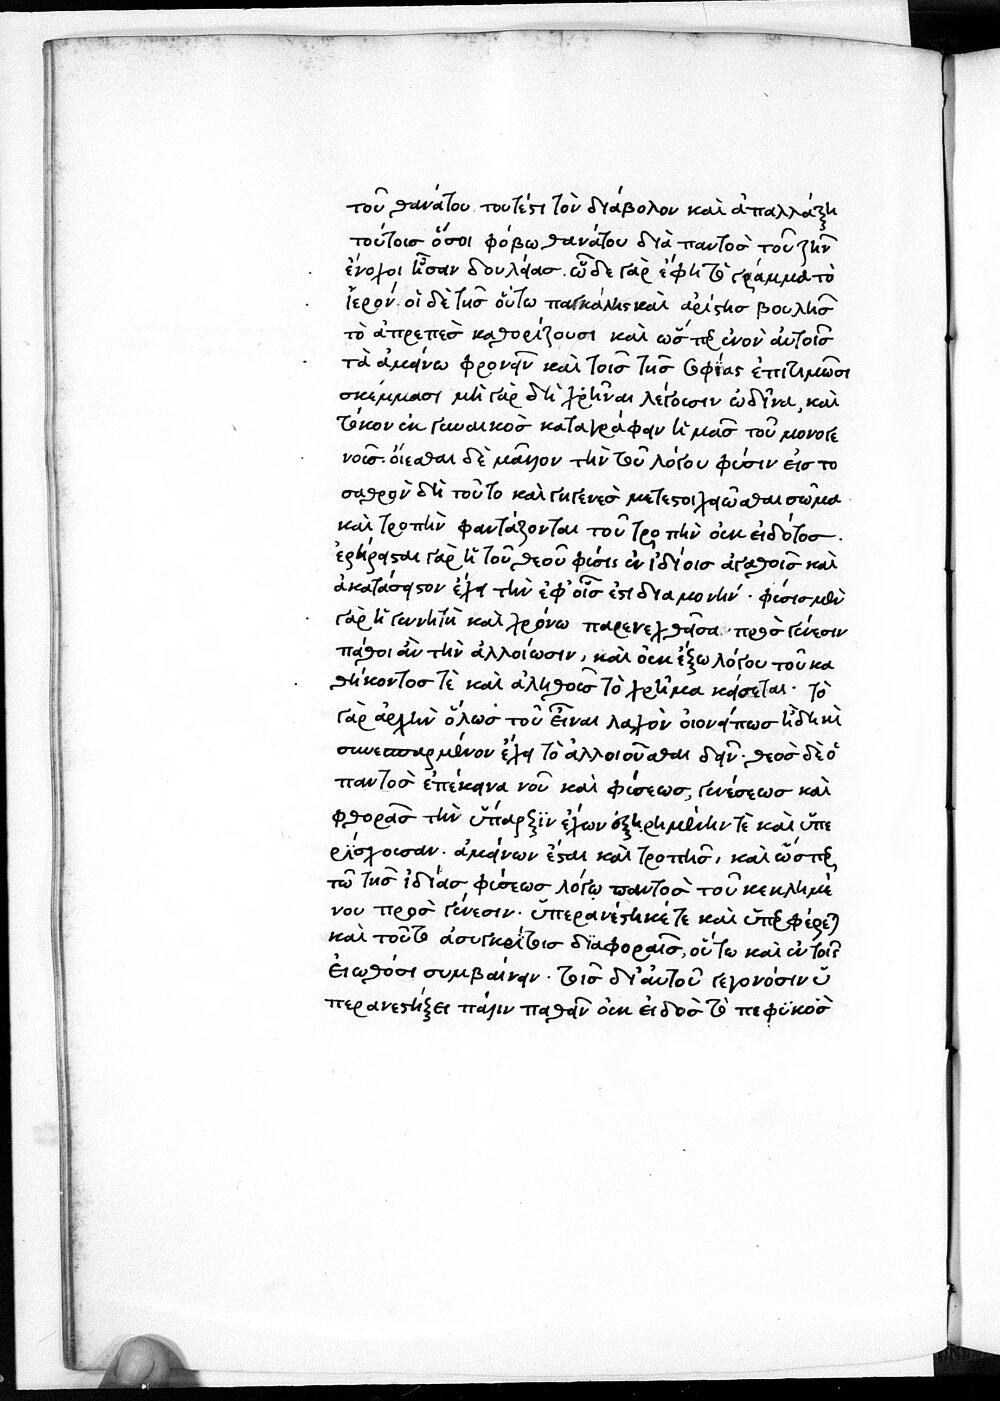 τοῦ θανάτου τουτέστι τὸν διάβολον καὶ ἀπαλλάξῃ
τούτοισ ὅσοι φόβω θανάτου διὰ παντὸσ τοῦ ζῆν
ἔνοχοι ἦσαν δουλείασ. ὧδε γὰρ ἔφη τὸ γράμμα τὸ
ἱερόν. οἱ δὲ τῆσ οὕτω παγκάλης καὶ ἀρίστησ βουλῆσ
τὸ ἀπρεπὲσ καθορίζουσι καὶ ὥσπερ ἐνὸν αὐτοῖσ
τὰ ἀμείνω φρονεῖν καὶ τοῖσ τῆσ σοφίας ἐπιτιμῶσι
σκέμμασι μὴ γὰρ δὴ χρῆναι λέγουσιν ὠδῖνα, καὶ
τόκον ἐκ γυναικὸσ καταγράφειν ἡμᾶσ τοῦ μονογε
νοῦσ. οἴεσθαι δὲ μᾶλλον τὴν τοῦ λόγου φύσιν εἰσ το
σαθρὸν δὴ τοῦτο καὶ γηγενὲσ μετεστοιχειῶσθαι σῶμα
καὶ τροπὴν φαντάζονται τοῦ τροπὴν οὐκ εἰδότοσ.
ἐρήρεισται γὰρ ἡ τοῦ θεοῦ φύσις ἐν ἰδίοισ ἀγαθοῖσ καὶ
ἀκατάσειστον ἔχει τὴν ἐφ' οἷσ ἐστι διαμονήν. φύσισ μὲν
γὰρ ἡ γεννητὴ καὶ χρόνω παρενεχθεῖσα πρὸσ γένεσιν
πάθοι ἂν τὴν ἀλλοίωσιν, καὶ οὐκ ἔξω λόγου τοῦ κα
θήκοντοσ τὲ καὶ ἀληθοῦσ τὸ χρῆμα κείσεται. τὸ
γὰρ ἀρχὴν ὅλωσ τοῦ εἶναι λαχὸν οἱονείπωσ ἤδη καὶ
συνεσπαρμένον ἔχει τὸ ἀλλοιοῦσθαι δεῖν. θεὸσ δὲ ὁ
παντὸσ ἐπέκεινα νοῦ καὶ φύσεωσ, γενέσεωσ καὶ
φθορᾶσ τὴν ὕπαρξϊν ἔχων ἐξηρημένην τὲ καὶ ὑπε
ρΐσχουσαν. ἀμείνων ἔσται καὶ τροπῆσ, καὶ ὥσπερ
τῶ τῆσ ἰδίασ φύσεωσ λόγω παντὸσ τοῦ κεκλημέ
νου πρὸσ γένεσιν. ὑπερανέστηκέ τε καὶ ὑπερφέρει
καὶ τοῦτο ἀσυγκρίτοισ διαφοραῖσ, οὕτω καὶ ἐν τοῖς
εἰωθόσι συμβαίνειν. τοῖσ δι' αὐτοῦ γεγονόσιν ὑ
περανεστήξει πάλιν παθεῖν οὐκ εἰδὸσ τὸ πεφϋκὸσ